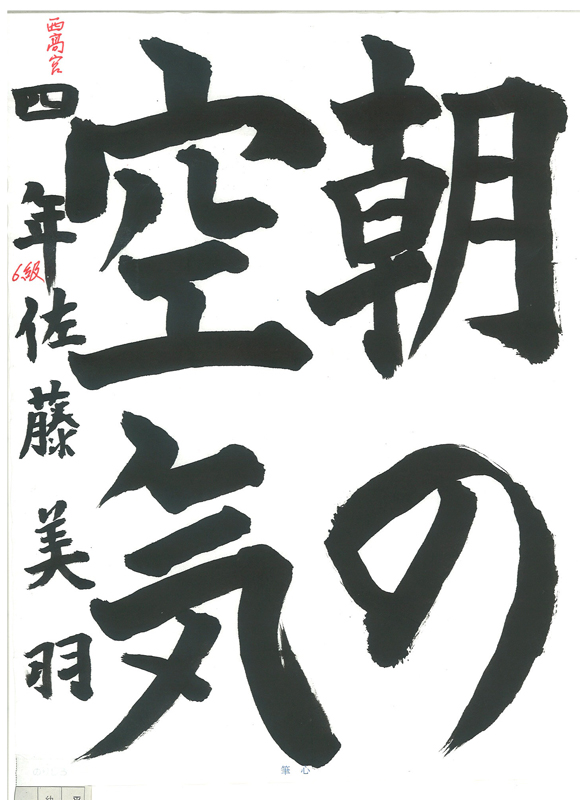 朝の
空気
西高宮
四年佐藤美羽
6級
筆心